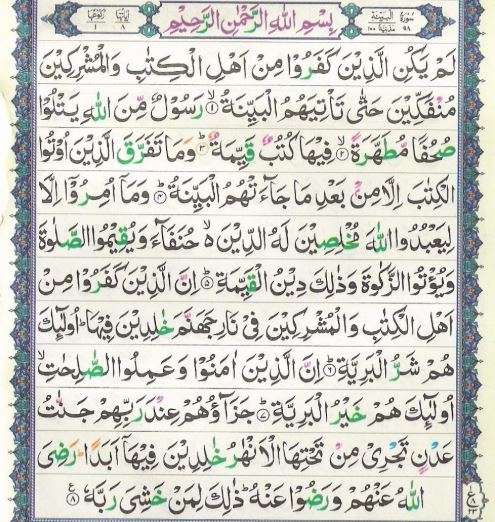 سورة البينة ٩٨ مدنية ١٠٠ بِسْمِ اللهِ الرَّحْمٰنِ الرَّحِيْمِ اٰیاتها ٨ رکوعها ١
لَمْ يَكُنِ الَّذِيْنَ كَفَرُوْا مِنْ اَهْلِ الْكِتٰبِ وَالْمُشْرِكِيْنَ
مُنْفَكِّيْنَ حَتّٰى تَاْتِيَهُمُ الْبَيِّنَةُ ۙ﴿١﴾ رَسُوْلٌ مِّنَ اللهِ يَتْلُوْا
صُحُفًا مُّطَهَّرَةً ۙ﴿٢﴾ فِيْهَا كُتُبٌ قَيِّمَةٌ ؕ﴿٣﴾ وَمَا تَفَرَّقَ الَّذِيْنَ اُوْتُوا
الْكِتٰبَ اِلَّا مِنْۢ بَعْدِ مَا جَآءَتْهُمُ الْبَيِّنَةُ ؕ﴿٤﴾ وَمَاۤ اُمِرُوْۤا اِلَّا
لِيَعْبُدُوا اللهَ مُخْلِصِيْنَ لَهُ الدِّيْنَ ۙ۬ حُنَفَآءَ وَيُقِيْمُوا الصَّلٰوةَ
وَيُؤْتُوا الزَّكٰوةَ وَذٰلِكَ دِيْنُ الْقَيِّمَةِ ؕ﴿٥﴾ اِنَّ الَّذِيْنَ كَفَرُوْا مِنْ
اَهْلِ الْكِتٰبِ وَالْمُشْرِكِيْنَ فِيْ نَارِ جَهَنَّمَ خٰلِدِيْنَ فِيْهَا ؕ اُولٰٓئِكَ
هُمْ شَرُّ الْبَرِيَّةِ ؕ﴿٦﴾ اِنَّ الَّذِيْنَ اٰمَنُوْا وَعَمِلُوا الصّٰلِحٰتِ ۙ
اُولٰٓئِكَ هُمْ خَيْرُ الْبَرِيَّةِ ؕ﴿٧﴾ جَزَآؤُهُمْ عِنْدَ رَبِّهِمْ جَنّٰتُ
عَدْنٍ تَجْرِيْ مِنْ تَحْتِهَا الْاَنْهٰرُ خٰلِدِيْنَ فِيْهَاۤ اَبَدًا ؕ رَضِيَ
اللهُ عَنْهُمْ وَرَضُوْا عَنْهُ ؕ ذٰلِكَ لِمَنْ خَشِيَ رَبَّهٗ ﴿٨﴾ ع ٢٣